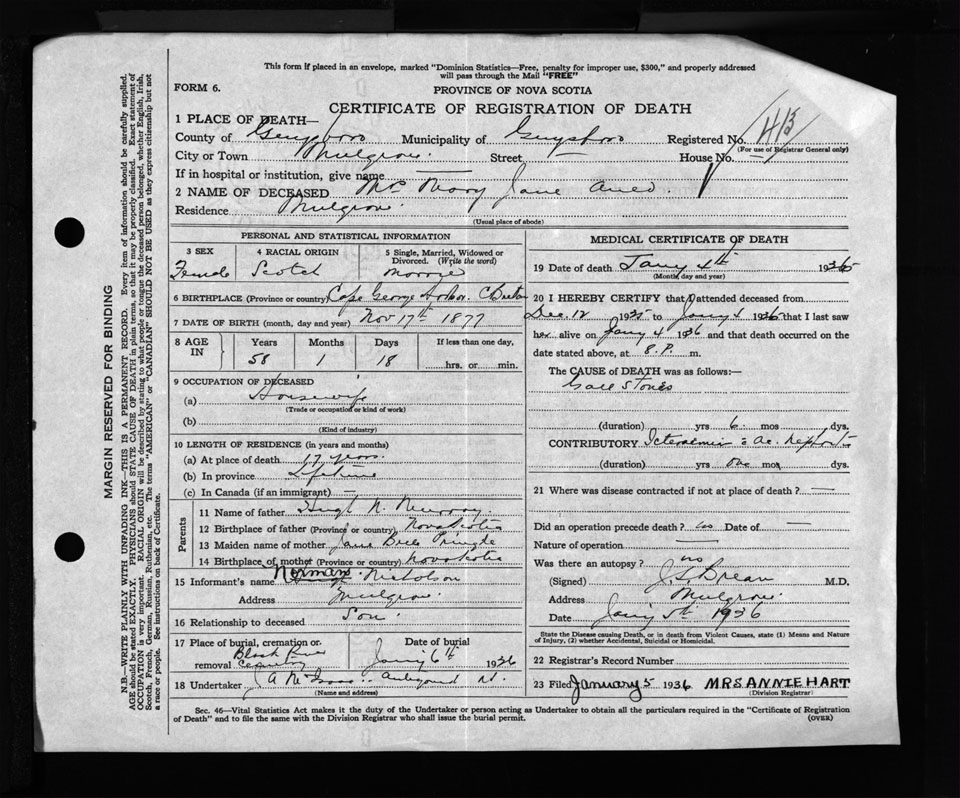 This form if placed in an envelope, marked "Dominion Statistics—Free, penalty for improper use, $300," and properly addressed
will pass through the Mail "FREE"
FORM 6.
PROVINCE OF NOVA SCOTIA
CERTIFICATE OF REGISTRATION OF DEATH
1 PLACE OF DEATH—
County of Guysboro Municipality of Guysboro Registered No. 413
(For use of Registrar General only)
City or Town Mulgrave. Street — House No. —
If in hospital or institution, give name —
2 NAME OF DECEASED Mrs Mary Jane
Residence Mulgrave.
(Usual place of abode)
PERSONAL AND STATISTICAL INFORMATION
3 SEX 4 RACIAL ORIGIN 5 Single, Married, Widowed or Divorced. (Write the word)
Female Scotch
6 BIRTHPLACE (Province or country) Cape George
7 DATE OF BIRTH (month, day and year) Nov 17th 1877
8 AGE IN Years Months Days If less than one day,
58 1 18 hrs. or min.
9 OCCUPATION OF DECEASED
(a) Housewife
(Trade or occupation or kind of work)
(b)
(Kind of industry)
10 LENGTH OF RESIDENCE (in years and months)
(a) At place of death 17 years.
(b) In province Lifetime
(c) In Canada (if an immigrant) —
Parents
11 Name of father Hugh N. Murray.
12 Birthplace of father (Province or country) Nova Scotia
13 Maiden name of mother Jane Pringle
14 Birthplace of mother (Province or country) Nova Scotia
15 Informant's name Norman Nicholson
Address Mulgrave.
16 Relationship to deceased Son.
17 Place of burial, cremation or removal Date of burial
Black River Cemetery Jany 6th 1936
18 Undertaker J. A. McIsaac Antigonish N.S.
(Name and address)
MEDICAL CERTIFICATE OF DEATH
19 Date of death Jany 4th 1936
(Month, day and year)
20 I HEREBY CERTIFY that I attended deceased from
Dec. 12 1935 to Jany 4 1936 that I last saw
her alive on Jany 4 1936 and that death occurred on the
date stated above, at 8.P. m.
The CAUSE of DEATH was as follows:—
Gall Stones
(duration) yrs 6 mos dys.
CONTRIBUTORY
(duration) yrs one mos dys.
21 Where was disease contracted if not at place of death? —
Did an operation precede death? no Date of —
Nature of operation —
Was there an autopsy? no
(Signed) M.D.
Address Mulgrave
Date Jany 5th 1936
State the Disease causing Death, or in death from Violent Causes, state (1) Means and Nature of Injury, (2) whether Accidental, Suicidal or Homicidal.
22 Registrar's Record Number
23 Filed January 5 1936 MRS ANNIE HART
(Division Registrar)
Sec. 46—Vital Statistics Act makes it the duty of the Undertaker or person acting as Undertaker to obtain all the particulars required in the "Certificate of Registration
of Death" and to file the same with the Division Registrar who shall issue the burial permit. (OVER)
MARGIN RESERVED FOR BINDING
N.B.—WRITE PLAINLY WITH UNFADING INK—THIS IS A PERMANENT RECORD. Every item of information should be carefully supplied.
AGE should be stated EXACTLY. PHYSICIANS should STATE CAUSE OF DEATH in plain terms, so that it may be properly classified. Exact statement of
OCCUPATION is very important. RACIAL ORIGIN will be described by stating to what people or tongue the deceased person belonged, whether English, Irish,
Scotch, French, German, Russian, Ruthenian, etc. The terms "AMERICAN" or "CANADIAN" SHOULD NOT BE USED as they express citizenship but not
a race or people. See instructions on back of Certificate.